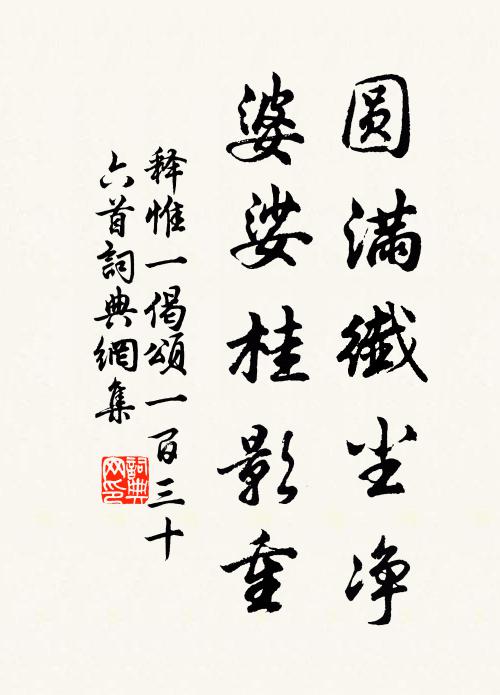 圆满纖尘净
婆娑桂影重
释惟一偈頌一百三十
六首詞典網集
詞典网印